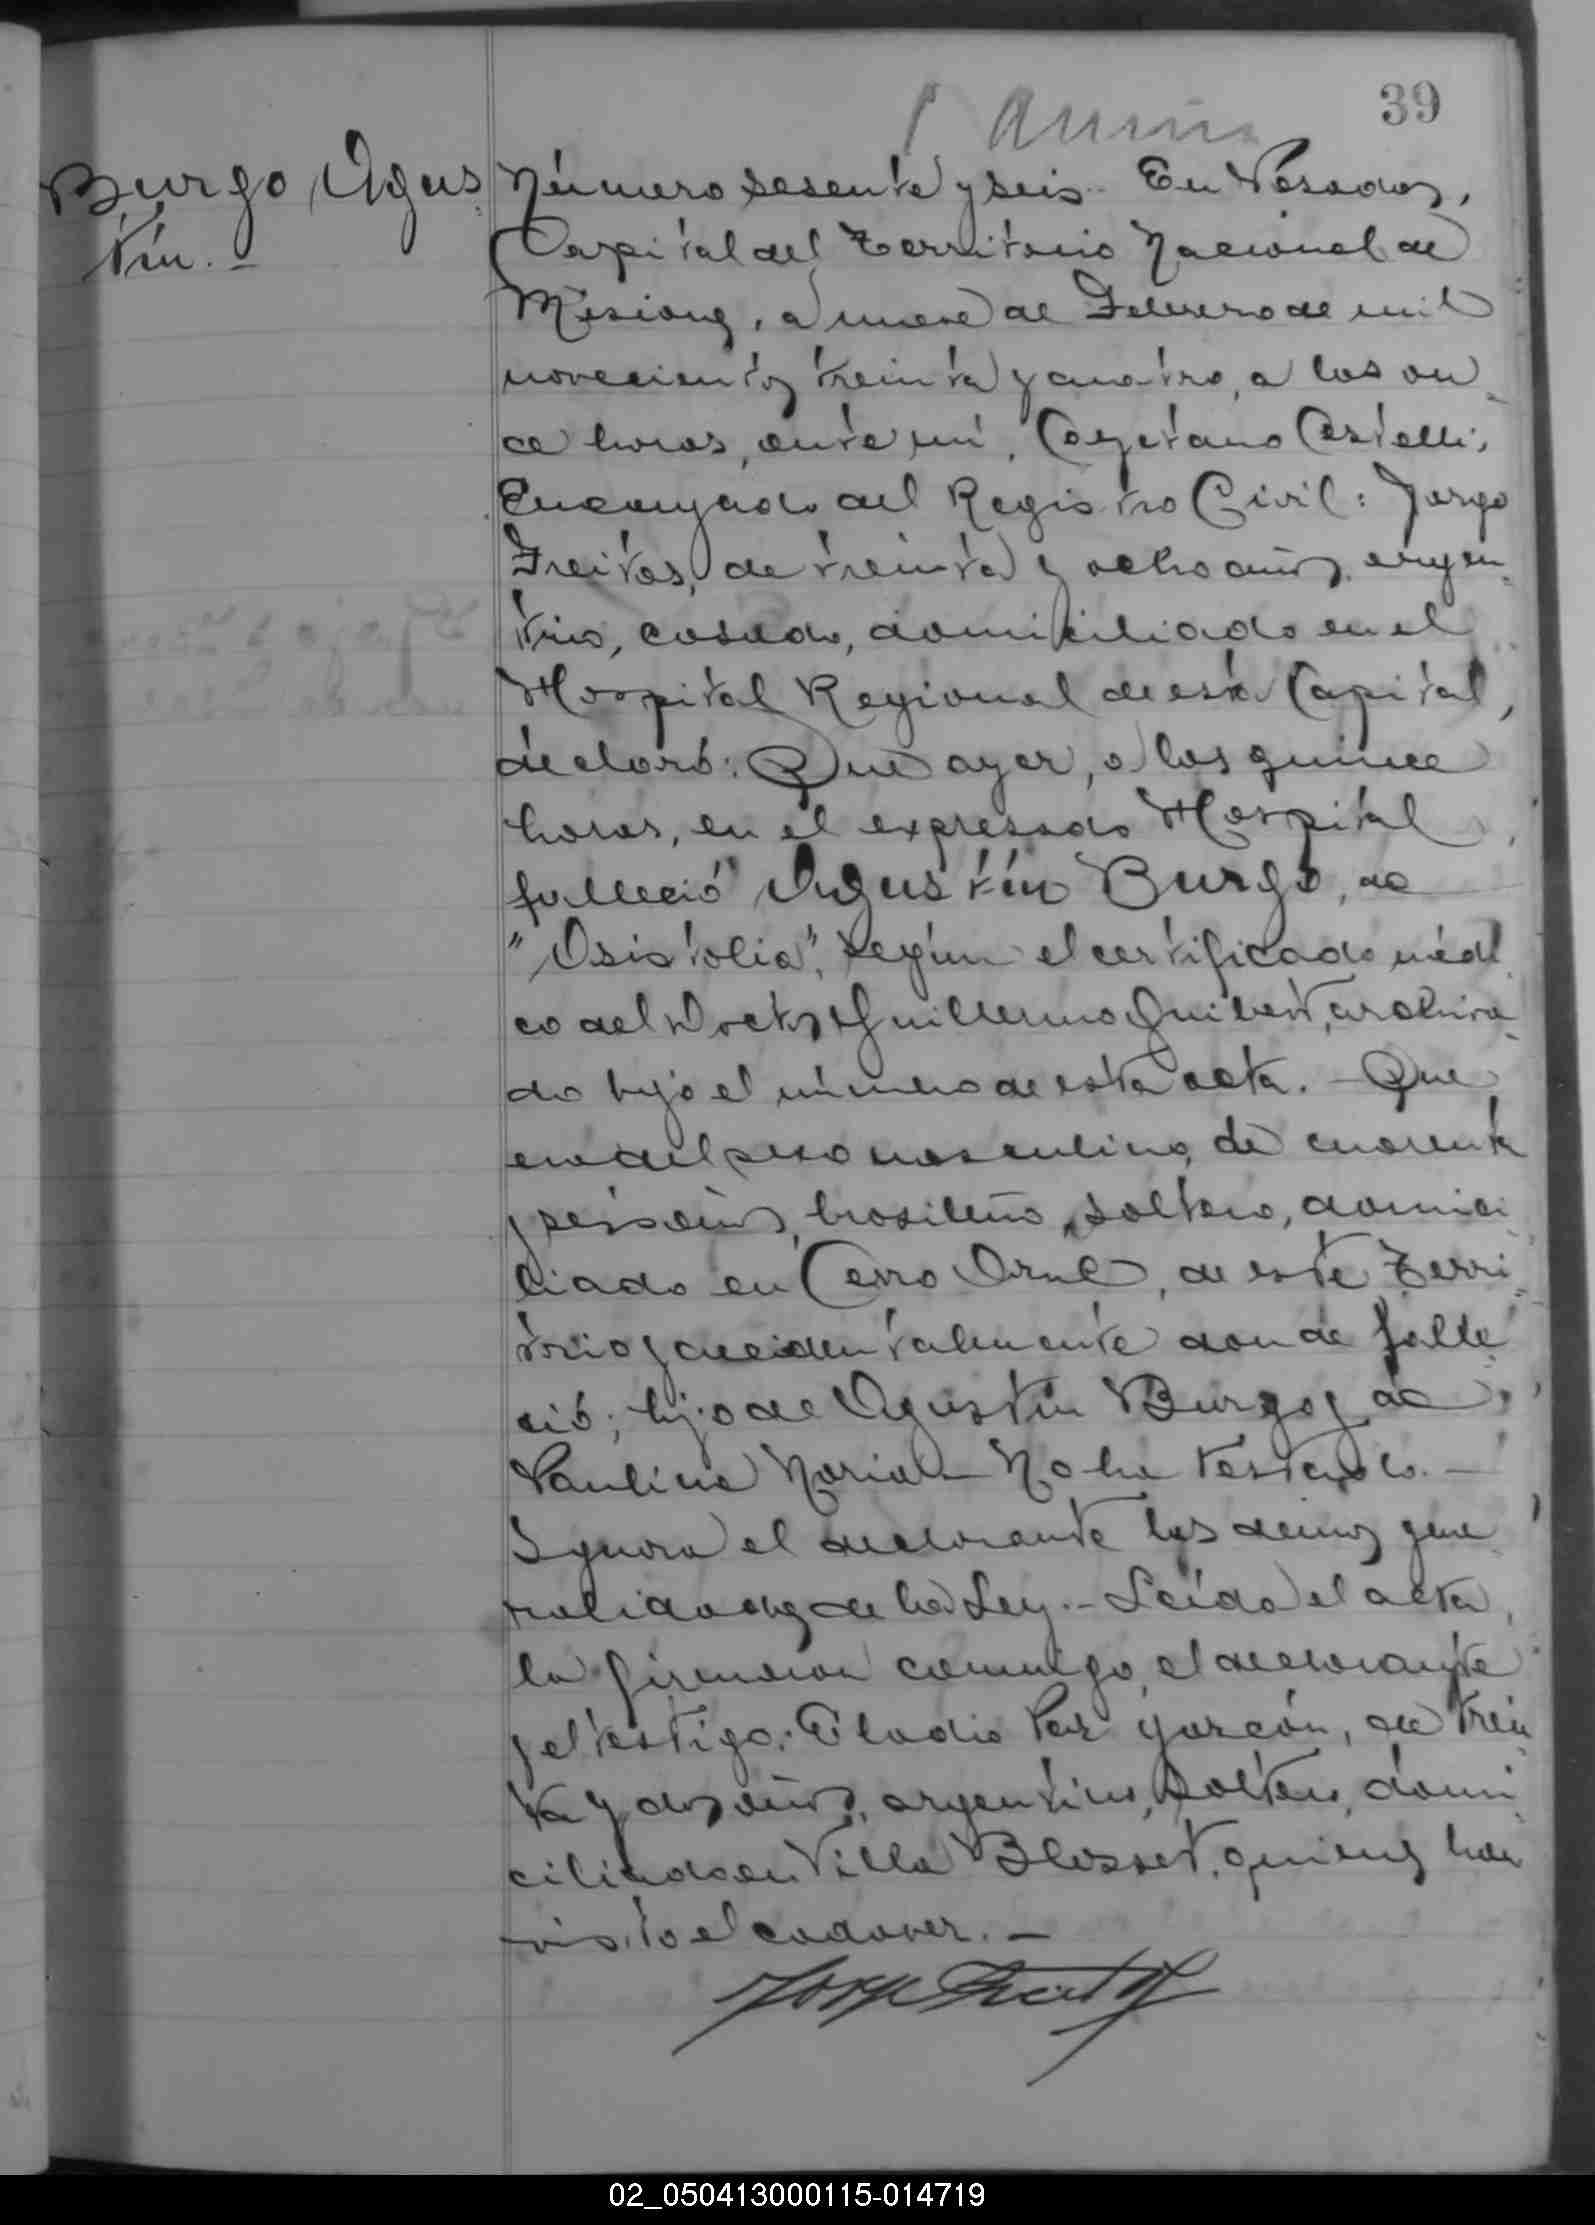 39
Burgo, Agus
tín.-
Número sesenta y seis. En Posadas,
Capital del Territorio Nacional de
Misiones, a nueve de Febrero de mil
novecientos treinta y cuatro, a las on
ce horas, ante mí, Cayetano Castelli,
Encargado del Registro Civil: Jorge
Freitas, de treinta y ocho años, argen
tino, casado, domiciliado en el
Hospital Regional de esta Capital,
declaró: Que ayer, a las quince
horas, en el expresado Hospital
falleció Agustín Burgo, de
"Asistolia", según el certificado médi
co del Doctor Guillermo archiva
do bajo el número de esta acta. - Que
era del sexo masculino, de cuarenta
y seis años, brasileño, soltero, domici
liado en Cerro Azul, de este Terri
torio y accidentalmente donde falle
ció; hijo de Agustín Burgo y de
Paulina María - No ha testado. -
Ignora el declarante las demás gene
ralidades de la Ley. - Leída el acta,
la firmaron conmigo, el declarante
y el testigo: Eladio de trein
ta y dos años, argentino, soltero, domi
ciliado en Villa Blosset, quienes han
visto el cadaver. -
Jorge Freitas
02_050413000115-014719